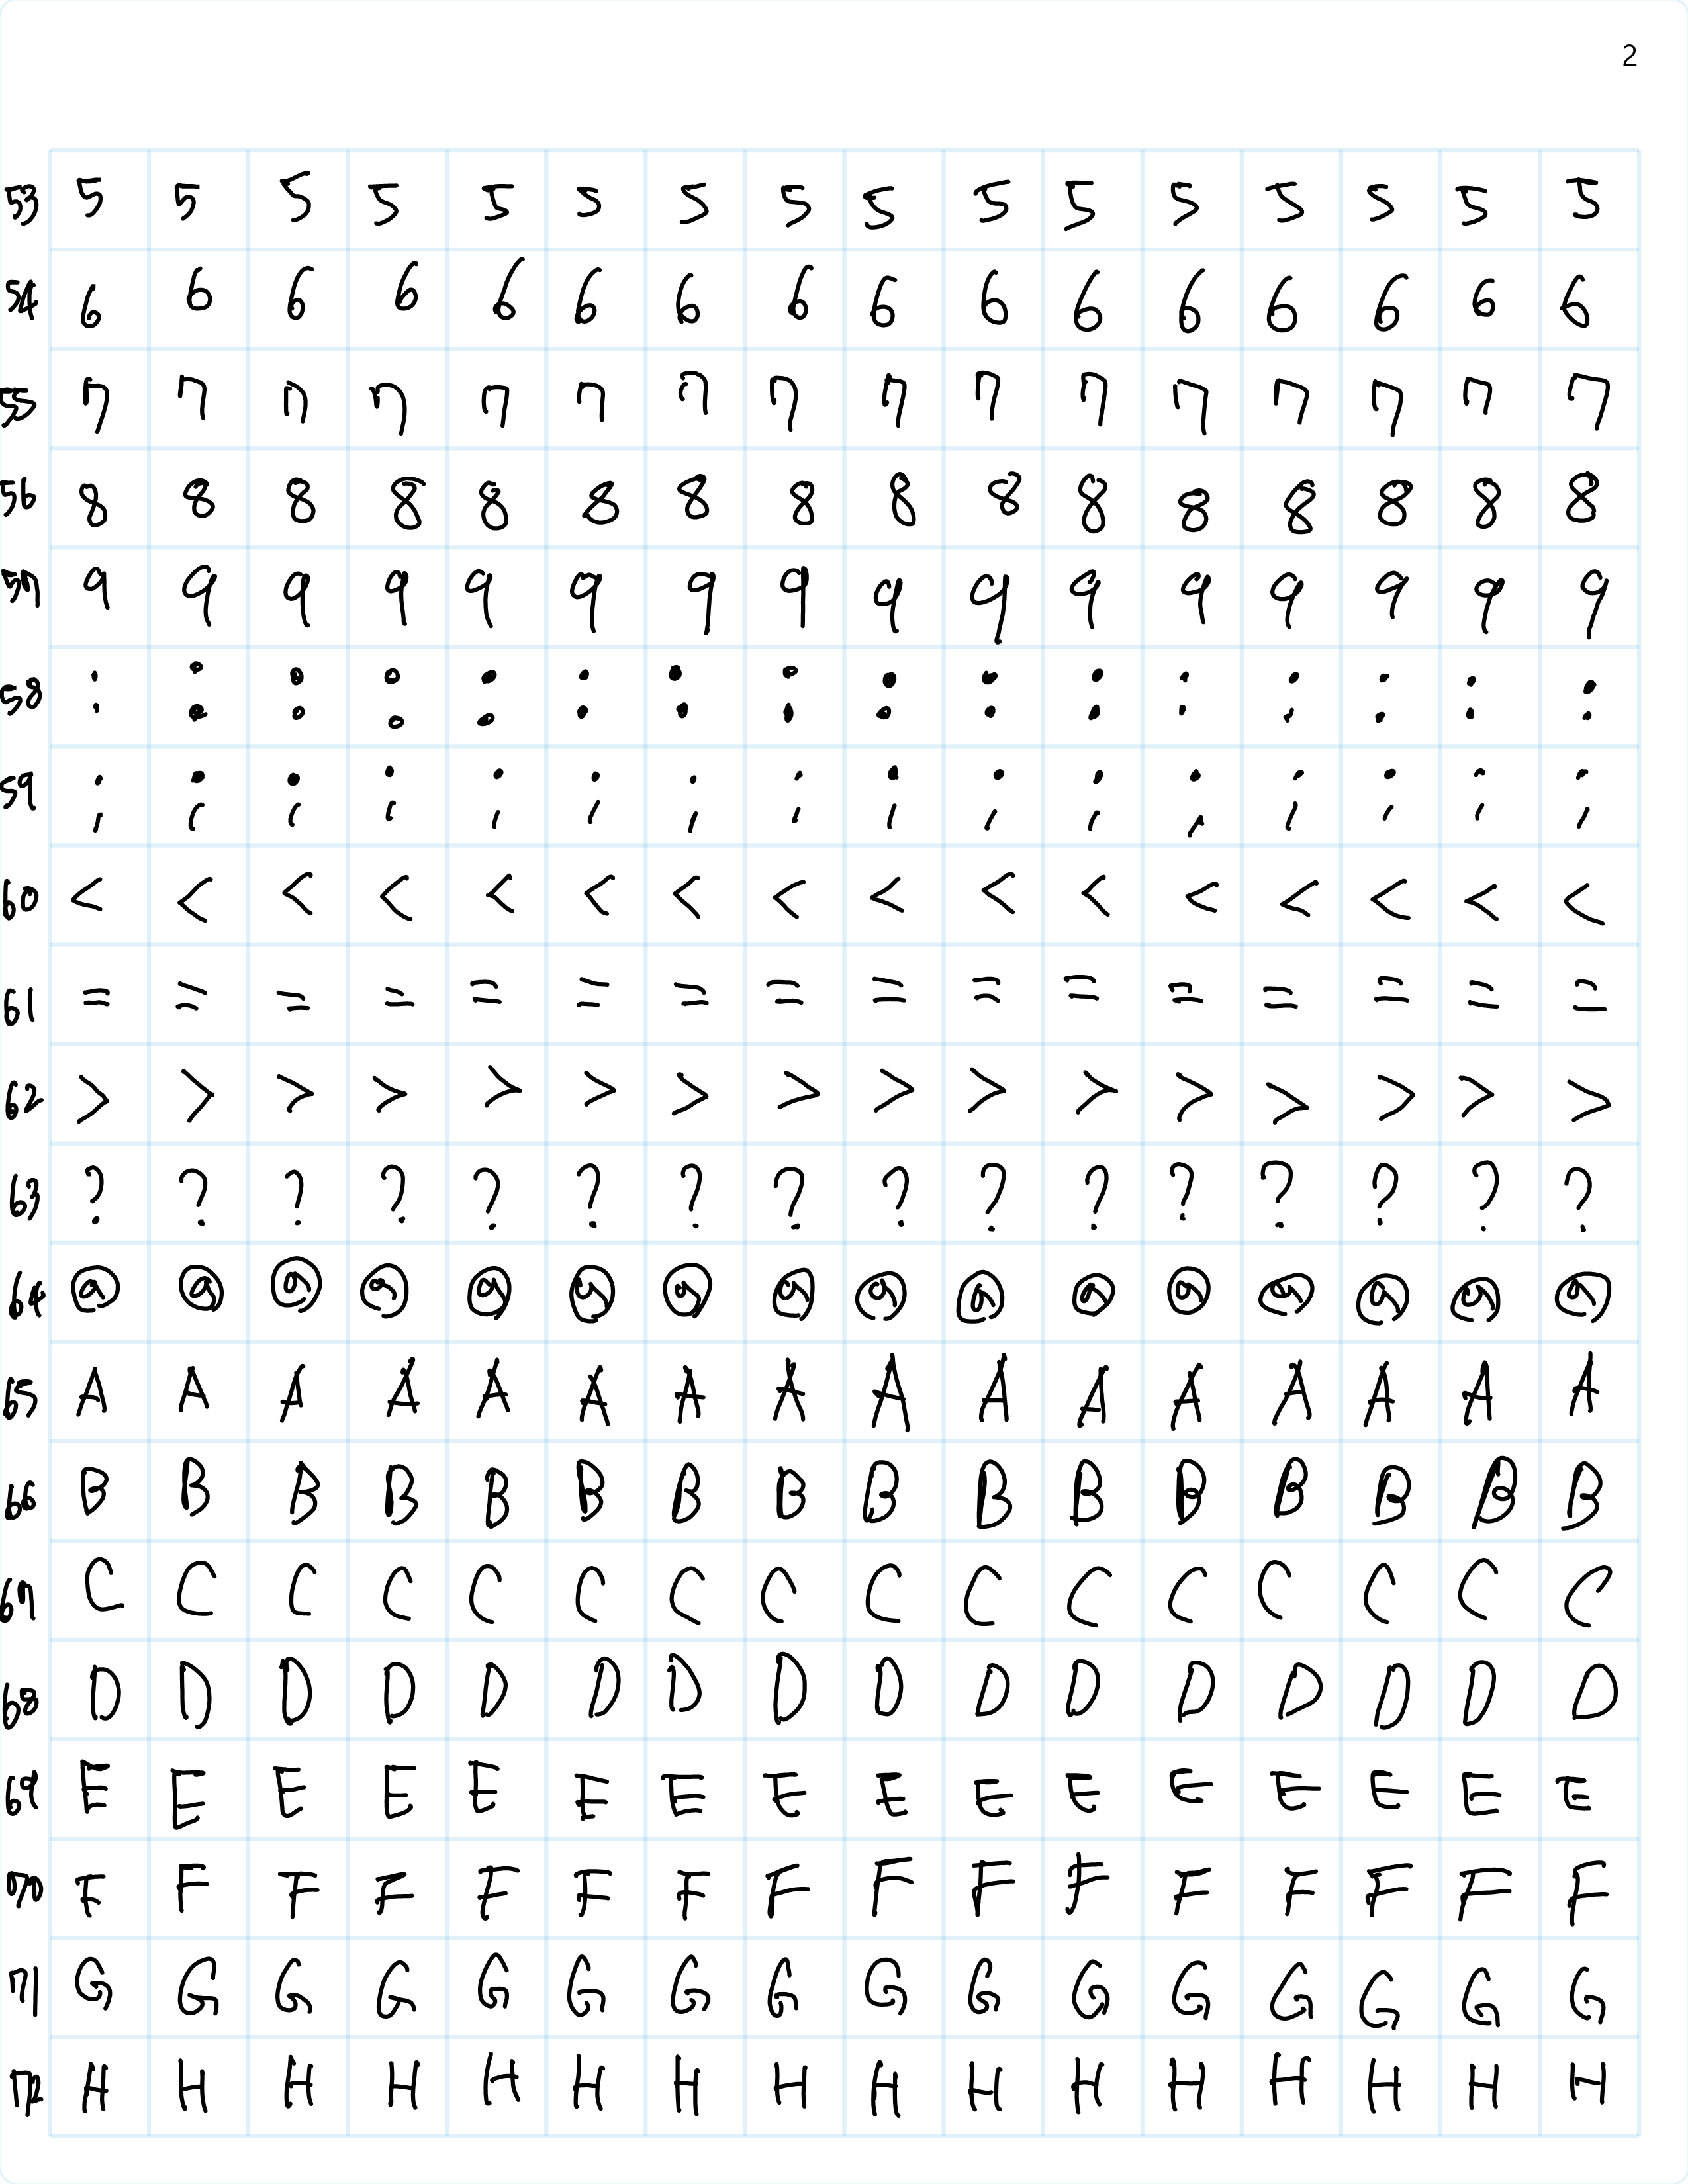 2
53 5 5 5 5 5 5 5 5 5 5 5 5 5 5 5 5
54 6 6 6 6 6 6 6 6 6 6 6 6 6 6 6 6
55 7 7 7 7 7 7 7 7 7 7 7 7 7 7 7 7
56 8 8 8 8 8 8 8 8 8 8 8 8 8 8 8 8
57 9 9 9 9 9 9 9 9 9 9 9 9 9 9 9 9
58 : : : : : : : : : : : : : : : :
59 ; ; ; ; ; ; ; ; ; ; ; ; ; ; ; ;
60 < < < < < < < < < < < < < < < <
61 = = = = = = = = = = = = = = = =
62 > > > > > > > > > > > > > > > >
63 ? ? ? ? ? ? ? ? ? ? ? ? ? ? ? ?
64 @ @ @ @ @ @ @ @ @ @ @ @ @ @ @ @
65 A A A A A A A A A A A A A A A A
66 B B B B B B B B B B B B B B B B
67 C C C C C C C C C C C C C C C C
68 D D D D D D D D D D D D D D D D
69 E E E E E E E E E E E E E E E E
70 F F F F F F F F F F F F F F F F
71 G G G G G G G G G G G G G G G G
72 H H H H H H H H H H H H H H H H